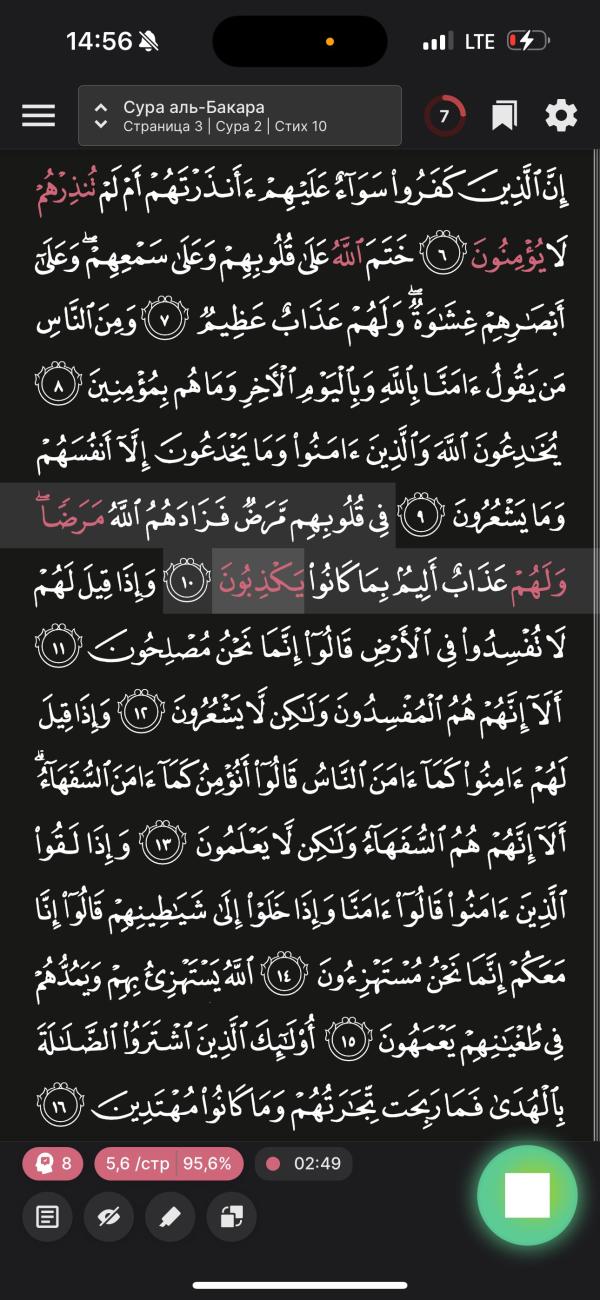 14:56
LTE
Сура аль-Бакара
Страница 3 | Сура 2 | Стих 10
7
إِنَّ ٱلَّذِينَ كَفَرُوا۟ سَوَآءٌ عَلَيْهِمْ ءَأَنذَرْتَهُمْ أَمْ لَمْ تُنذِرْهُمْ
لَا يُؤْمِنُونَ ٦ خَتَمَ ٱللَّهُ عَلَىٰ قُلُوبِهِمْ وَعَلَىٰ سَمْعِهِمْ ۖ وَعَلَىٰٓ
أَبْصَـٰرِهِمْ غِشَـٰوَةٌ ۖ وَلَهُمْ عَذَابٌ عَظِيمٌ ٧ وَمِنَ ٱلنَّاسِ
مَن يَقُولُ ءَامَنَّا بِٱللَّهِ وَبِٱلْيَوْمِ ٱلْـَٔاخِرِ وَمَا هُم بِمُؤْمِنِينَ ٨
يُخَـٰدِعُونَ ٱللَّهَ وَٱلَّذِينَ ءَامَنُوا۟ وَمَا يَخْدَعُونَ إِلَّآ أَنفُسَهُمْ
وَمَا يَشْعُرُونَ ٩ فِى قُلُوبِهِم مَّرَضٌ فَزَادَهُمُ ٱللَّهُ مَرَضًا ۖ
وَلَهُمْ عَذَابٌ أَلِيمٌۢ بِمَا كَانُوا۟ يَكْذِبُونَ ١٠ وَإِذَا قِيلَ لَهُمْ
لَا تُفْسِدُوا۟ فِى ٱلْأَرْضِ قَالُوٓا۟ إِنَّمَا نَحْنُ مُصْلِحُونَ ١١
أَلَآ إِنَّهُمْ هُمُ ٱلْمُفْسِدُونَ وَلَـٰكِن لَّا يَشْعُرُونَ ١٢ وَإِذَا قِيلَ
لَهُمْ ءَامِنُوا۟ كَمَآ ءَامَنَ ٱلنَّاسُ قَالُوٓا۟ أَنُؤْمِنُ كَمَآ ءَامَنَ ٱلسُّفَهَآءُ ۗ
أَلَآ إِنَّهُمْ هُمُ ٱلسُّفَهَآءُ وَلَـٰكِن لَّا يَعْلَمُونَ ١٣ وَإِذَا لَقُوا۟
ٱلَّذِينَ ءَامَنُوا۟ قَالُوٓا۟ ءَامَنَّا وَإِذَا خَلَوْا۟ إِلَىٰ شَيَـٰطِينِهِمْ قَالُوٓا۟ إِنَّا
مَعَكُمْ إِنَّمَا نَحْنُ مُسْتَهْزِءُونَ ١٤ ٱللَّهُ يَسْتَهْزِئُ بِهِمْ وَيَمُدُّهُمْ
فِى طُغْيَـٰنِهِمْ يَعْمَهُونَ ١٥ أُو۟لَـٰٓئِكَ ٱلَّذِينَ ٱشْتَرَوُا۟ ٱلضَّلَـٰلَةَ
بِٱلْهُدَىٰ فَمَا رَبِحَت تِّجَـٰرَتُهُمْ وَمَا كَانُوا۟ مُهْتَدِينَ ١٦
8
5,6 /стр 95,6%
02:49